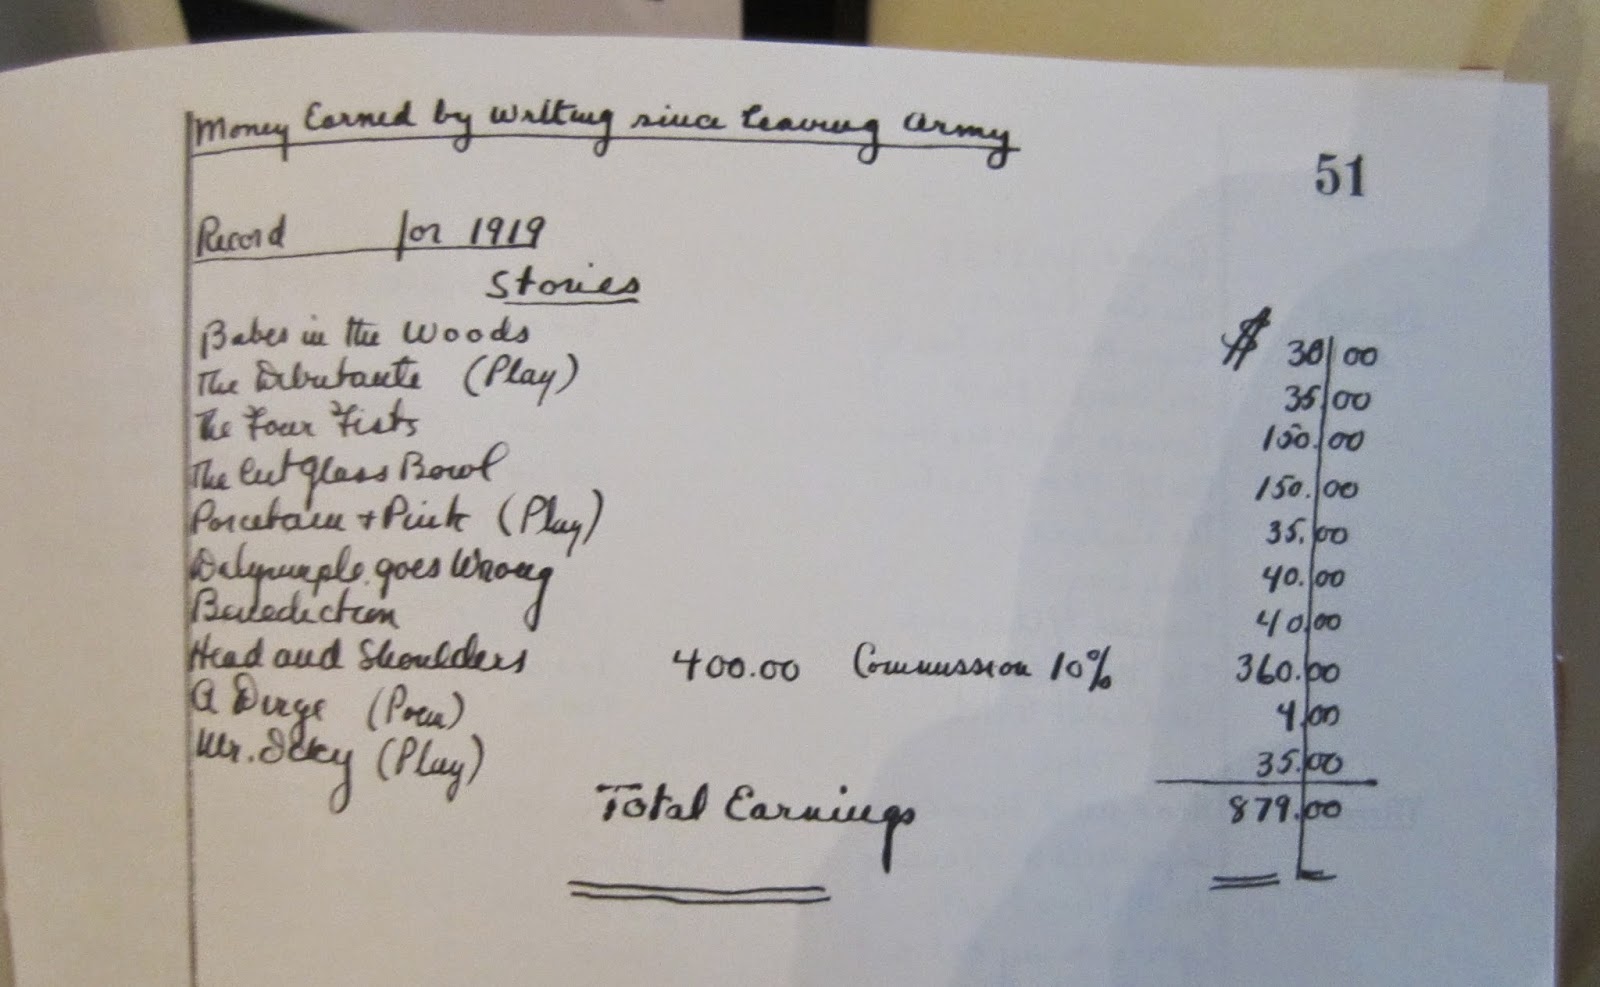 Money Earned by Writing since Leaving Army
51
Record for 1919
Stories
Babes in the Woods $ 30.00
The Debutante (Play) 35.00
The Four Fists 150.00
The Cut Glass Bowl 150.00
Porcelain + Pink (Play) 35.00
Dalyrimple goes Wrong 40.00
Benediction 40.00
Head and Shoulders 400.00 Commission 10% 360.00
A Dirge (Poem) 4.00
Mr. Icky (Play) 35.00
Total Earnings 879.00